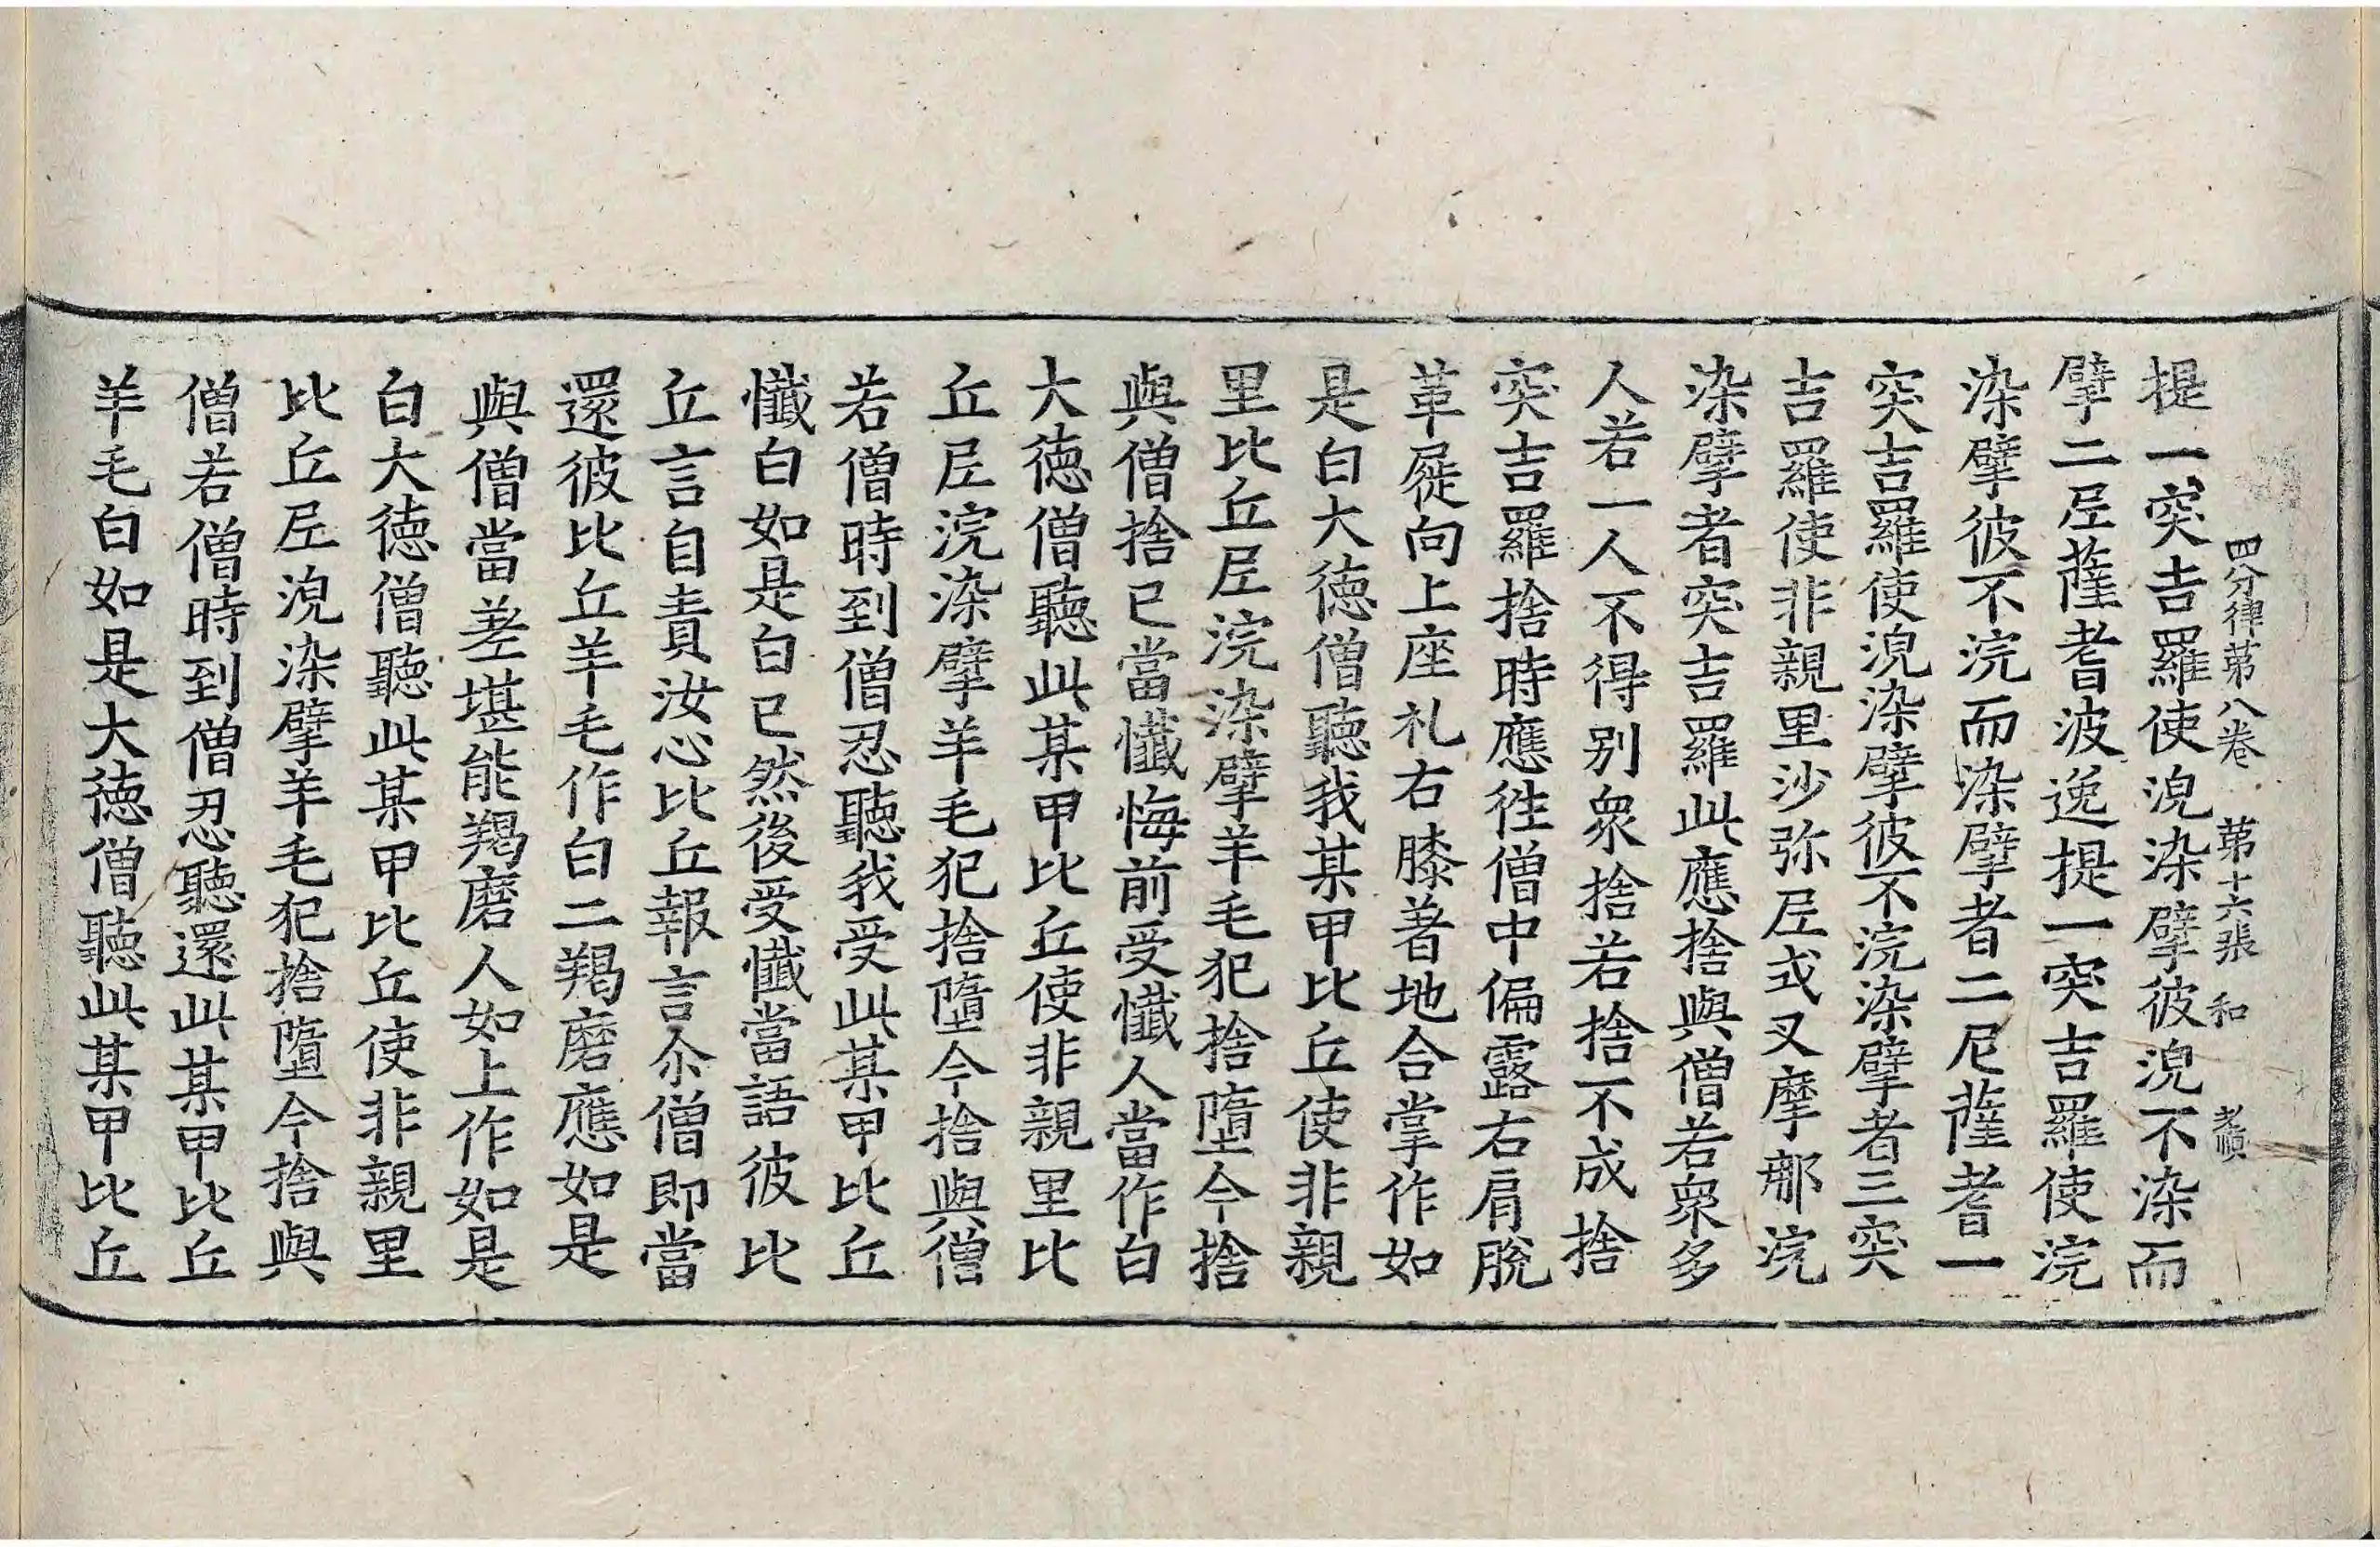 四分律第八卷 第十六張 和 老順
提一突吉羅使浼染擘彼浼不染而
擘二𡰱薩耆波逸提一突吉羅使浣
染擘彼不浣而染擘者二尼薩耆一
突吉羅使浼染擘彼不浣染擘者三突
吉羅使非親里沙弥𡰱或叉摩那浣
染擘者突吉羅此應捨與僧若衆多
人若一人不得别衆捨若捨不成捨
突吉羅捨時應徃僧中偏露右肩脫
革屣向上座礼右膝著地合掌作如
是白大徳僧聽我某甲比丘使非親
里比丘𡰱浣染擘羊毛犯捨墮今捨
與僧捨已當懺悔前受懺人當作白
大徳僧聽此某甲比丘使非親里比
丘𡰱浣染擘羊毛犯捨墮今捨與僧
若僧時到僧忍聽我受此某甲比丘
懺白如是白已然後受懺當語彼比
丘言自責汝心比丘報言尒僧即當
還彼比丘羊毛作白二羯磨應如是
與僧當差堪能羯磨人如上作如是
白大徳僧聽此某甲比丘使非親里
比丘𡰱浼染擘羊毛犯捨墮今捨與
僧若僧時到僧忍聽還此某甲比丘
羊毛白如是大徳僧聽此某甲比丘